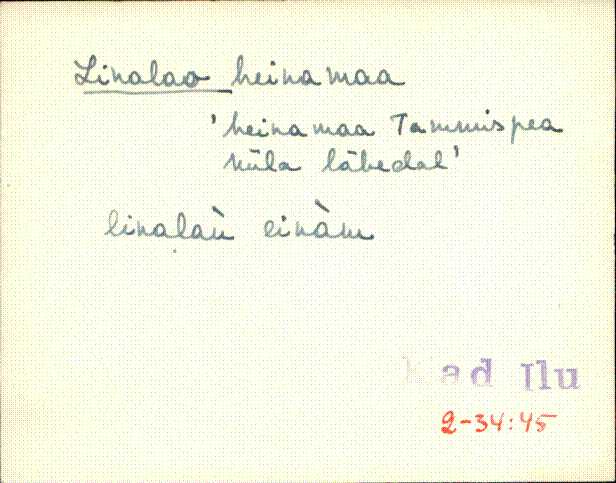 Linalao heinamaa
'heinamaa Tammispea
küla lähedal'
linalaù einàm
Kad Ilu
2-34:45